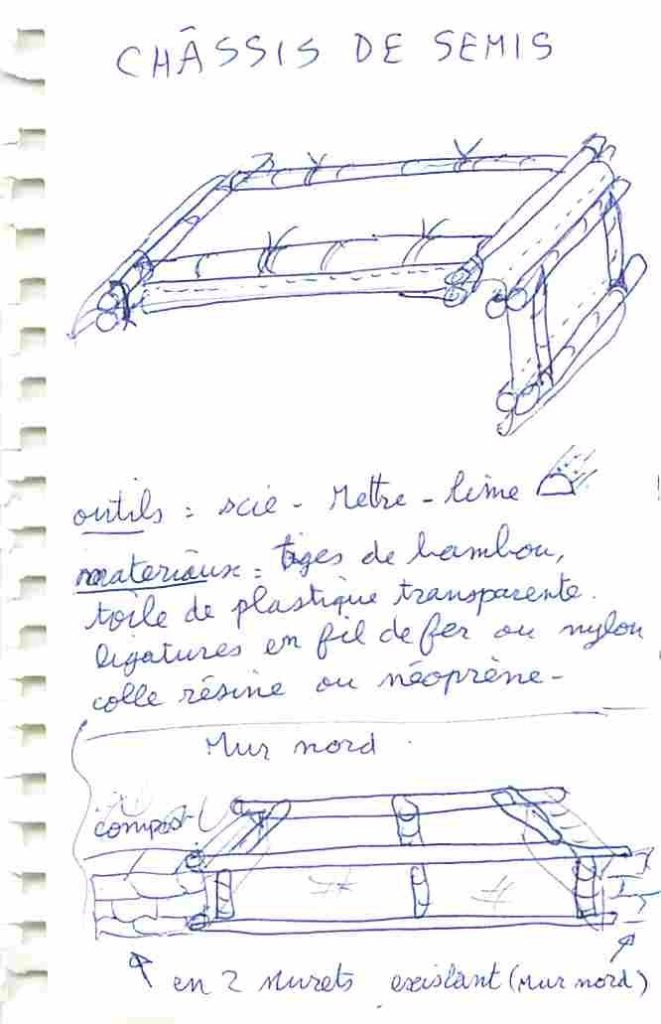 CHÂSSIS DE SEMIS
outils : scie - Mettre - lime
materiaux : tiges de bambou,
toile de plastique transparente.
ligatures en fil de fer ou nylon
colle résine ou néoprène -
Mur nord
compost
en 2 murets existant (Mur nord)